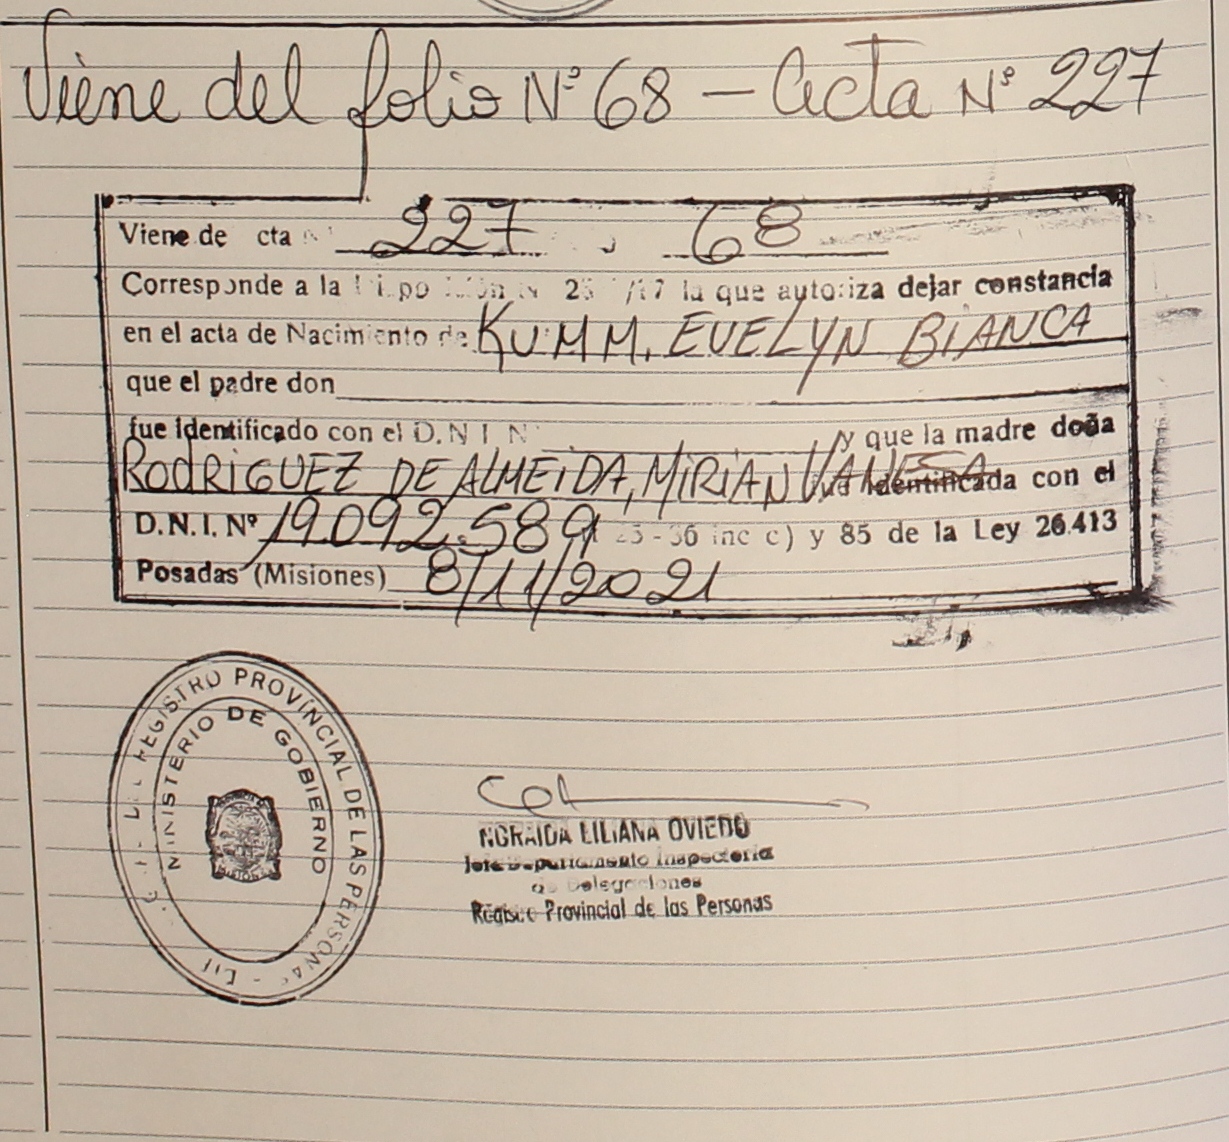 Viene del folio Nº 68 - Acta Nº 227
Viene de cta 227 68
Corresponde a la la que autoriza dejar constancia
en el acta de Nacimiento de KUMM, EVELYN BIANCA
que el padre don
fue identificado con el D.N.I. N y que la madre doña
RODRIGUEZ DE ALMEIDA, MIRIAN VANESA identificada con el
D.N.I. Nº 19.092.589 inc c) y 85 de la Ley 26.413
Posadas (Misiones) 8/11/2021
REGISTRO PROVINCIAL DE LAS PERSONAS
MINISTERIO DE GOBIERNO
MISIONES
NORAIDA LILIANA OVIEDO
Jefe Departamento Inspectoria
de Delegaciones
Registro Provincial de las Personas